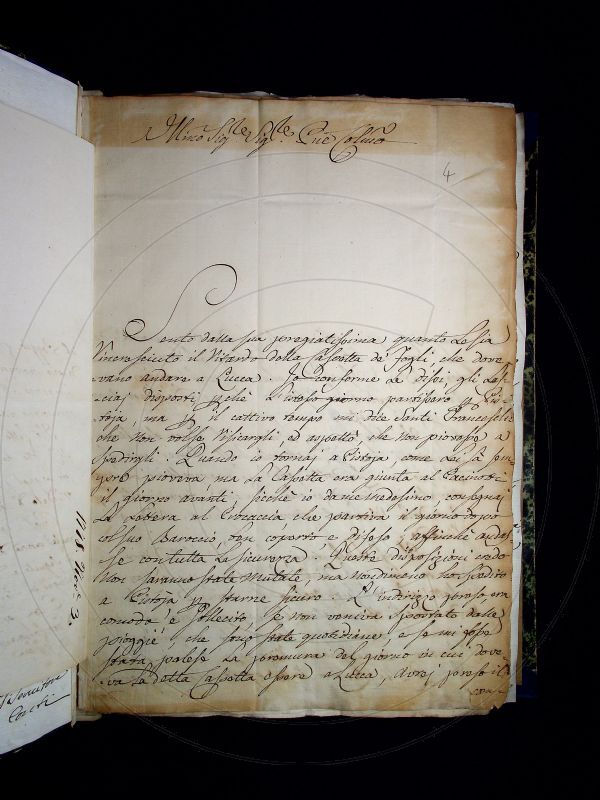 Illmo Sigre Sigre Pne Colmo
4
Sento dalla sua pregiatissima quanto Le sia
rincresciuto il Ritardo della Cassetta de' fogli che dove
vano andare a Lucca. Io conforme Le dissi gli La-
sciai disposti perchè l'istesso giorno partissero per Pis
toja, ma per il cattivo tempo mi dice Santi
che non volse risicargli, ed aspettò, che non piovesse a
spedirgli. Quando io tornai a Pistoja come Lei sà sem
pre pioveva ma La Cassetta era giunta al
il giorno avanti, sicchè io da me medesimo consegnai
La Lettera al Procaccia che partiva il giorno dopo
col suo Baroccio, ben coperto e difeso, affinchè andas
se con tutta La sicurezza. Queste disposizioni credo
Non saranno state mutate, ma nondimeno ho spedito
a Pistoja per starne sicuro. L'indirizzo preso era
comodo e sollecito, se non veniva sportato dalle
pioggie che sono state quotidiane, e se mi fosse
stata palese La premura del giorno in cui dove
va La detta Cassetta essere a Lucca, Avrei preso il
con
1768 3.
Servitore